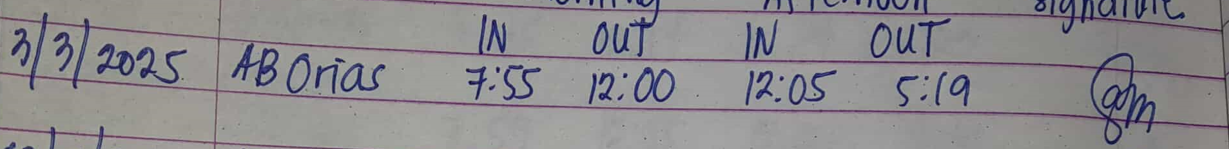 Signature
IN OUT IN OUT
3/3/2025 AB Orias 7:55 12:00 12:05 5:19